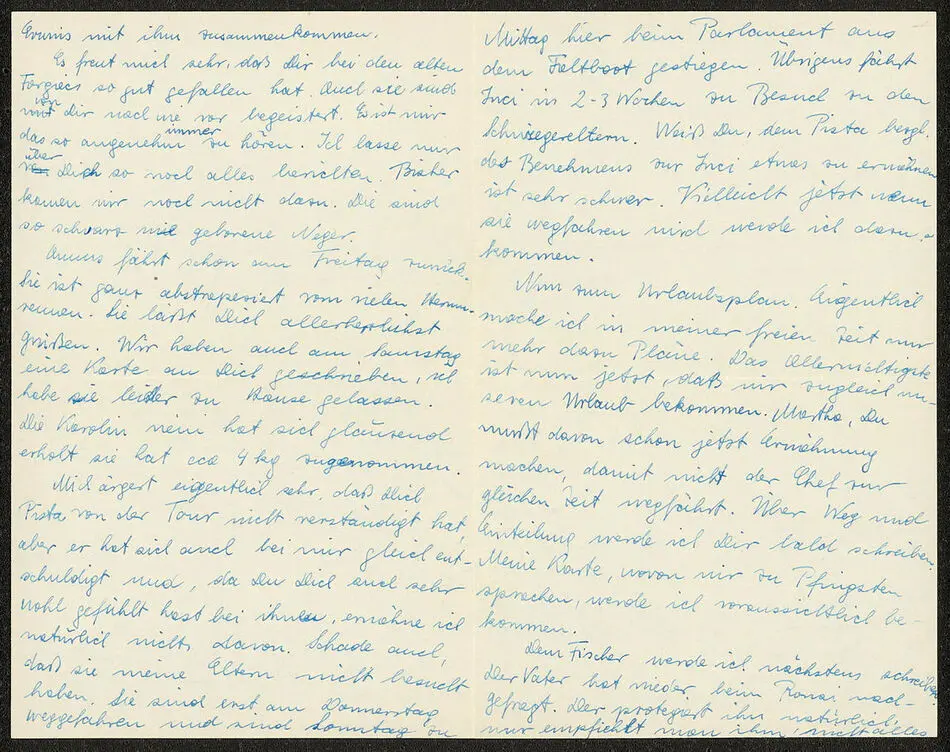 Evamis mit ihm zusammenkommen.
Es freut mich sehr, daß Dir bei den alten
so gut gefallen hat. Auch sie sind
von Dir nach wie vor begeistert. Es ist mir
das so angenehm immer zu hören. Ich lasse nur
über Dich so noch alles berichten. Bisher
kamen wir noch nicht dazu. Die sind
so schwarz wie geborene Neger.
fährt schon am Freitag zurück.
Sie ist ganz abstrapeziert vom vielen Herum-
rennen. Sie läßt Dich allerherzlichst
grüßen. Wir haben auch am Samstag
eine Karte an Dich geschrieben, ich
habe sie leider zu Hause gelassen.
Die Karolin neni hat sich glänzend
erholt sie hat cca 4 kg zugenommen.
Mich ärgert eigentlich sehr, daß Dich
Pista von der Tour nicht verständigt hat,
aber er hat sich auch bei mir gleich ent-
schuldigt und, da Du Dich auch sehr
wohl gefühlt hast bei ihnen, erwähne ich
natürlich nichts davon. Schade auch,
daß sie meine Eltern nicht besucht
haben. Sie sind erst am Donnerstag
weggefahren und sind Sonntag zu
Mittag hier beim Parlament aus
dem Faltboot gestiegen. Übrigens fährt
Inci in 2-3 Wochen zu Besuch zu den
Schwiegereltern. Weißt Du, dem Pista bezgl.
des Benehmens zur Inci etwas zu erwähnen
ist sehr schwer. Vielleicht jetzt wenn
sie wegfahren wird werde ich dazu
kommen.
Nun zum Urlaubsplan. Eigentlich
mache ich in meiner freien Zeit nur
mehr dazu Pläne. Das Allerwichtigste
ist nun jetzt, daß wir zugleich un-
seren Urlaub bekommen. Martha, Du
mußt davon schon jetzt Erwähnung
machen, damit nicht der Chef zur
gleichen Zeit wegfährt. Über Weg und
Einteilung werde ich Dir bald schreiben.
Meine Karte, wovon wir zu Pfingsten
sprachen, werde ich voraussichtlich be-
kommen.
Dem Fischer werde ich nächstens schreiben.
Der Vater hat wieder beim Ronai nach-
gefragt. Der protegiert ihn natürlich,
nur empfiehlt man ihm, nicht alles